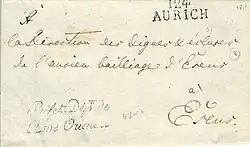 124
AURICH
A
la Direction des digues & écluses
de l'ancien bailliage d'Ereur
a
Ereur
Préfet. Dépt. de
l'Ems Orient